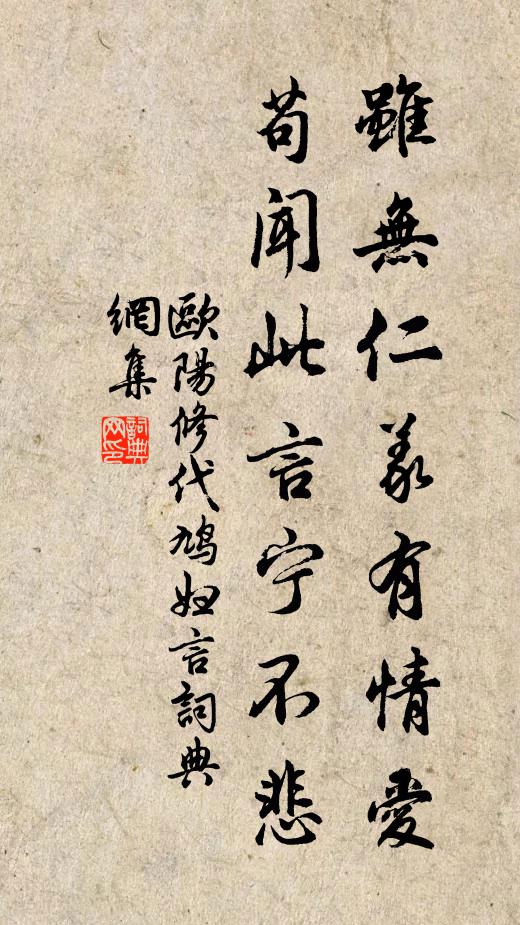 雖無仁義有情愛
苟聞此言宁不悲
歐陽修代鳩婦言詞典
網集
詞典网印